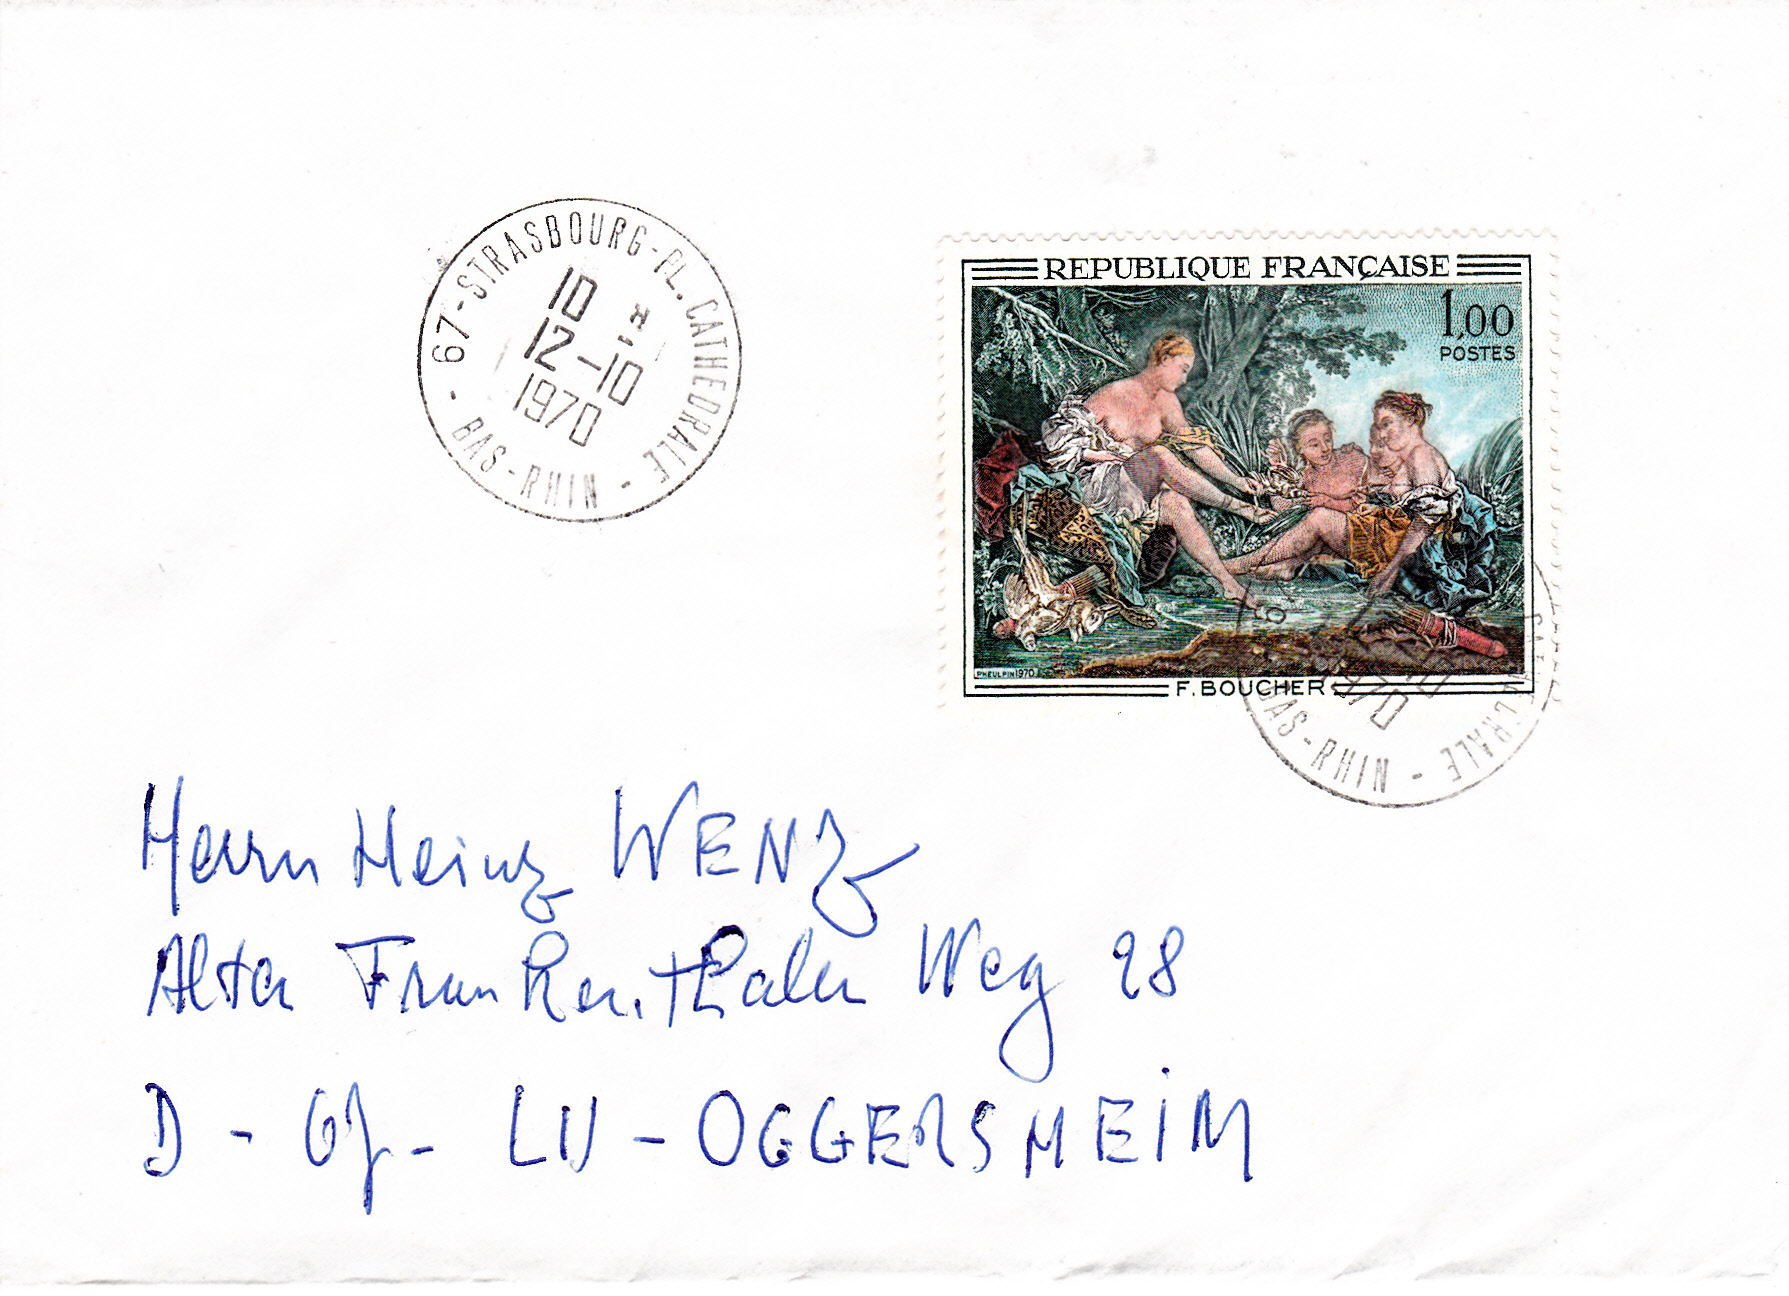 67-STRASBOURG-PL. CATHEDRALE -
10 H
12-10
1970
- BAS-RHIN -
REPUBLIQUE FRANÇAISE
1,00
POSTES
PHEULPIN 1970
F. BOUCHER
CATHEDRALE -
-10
1970
BAS-RHIN -
Herrn Heinz WENZ
Alter Frankenthaler Weg 28
D - 67 - LU - OGGERSHEIM